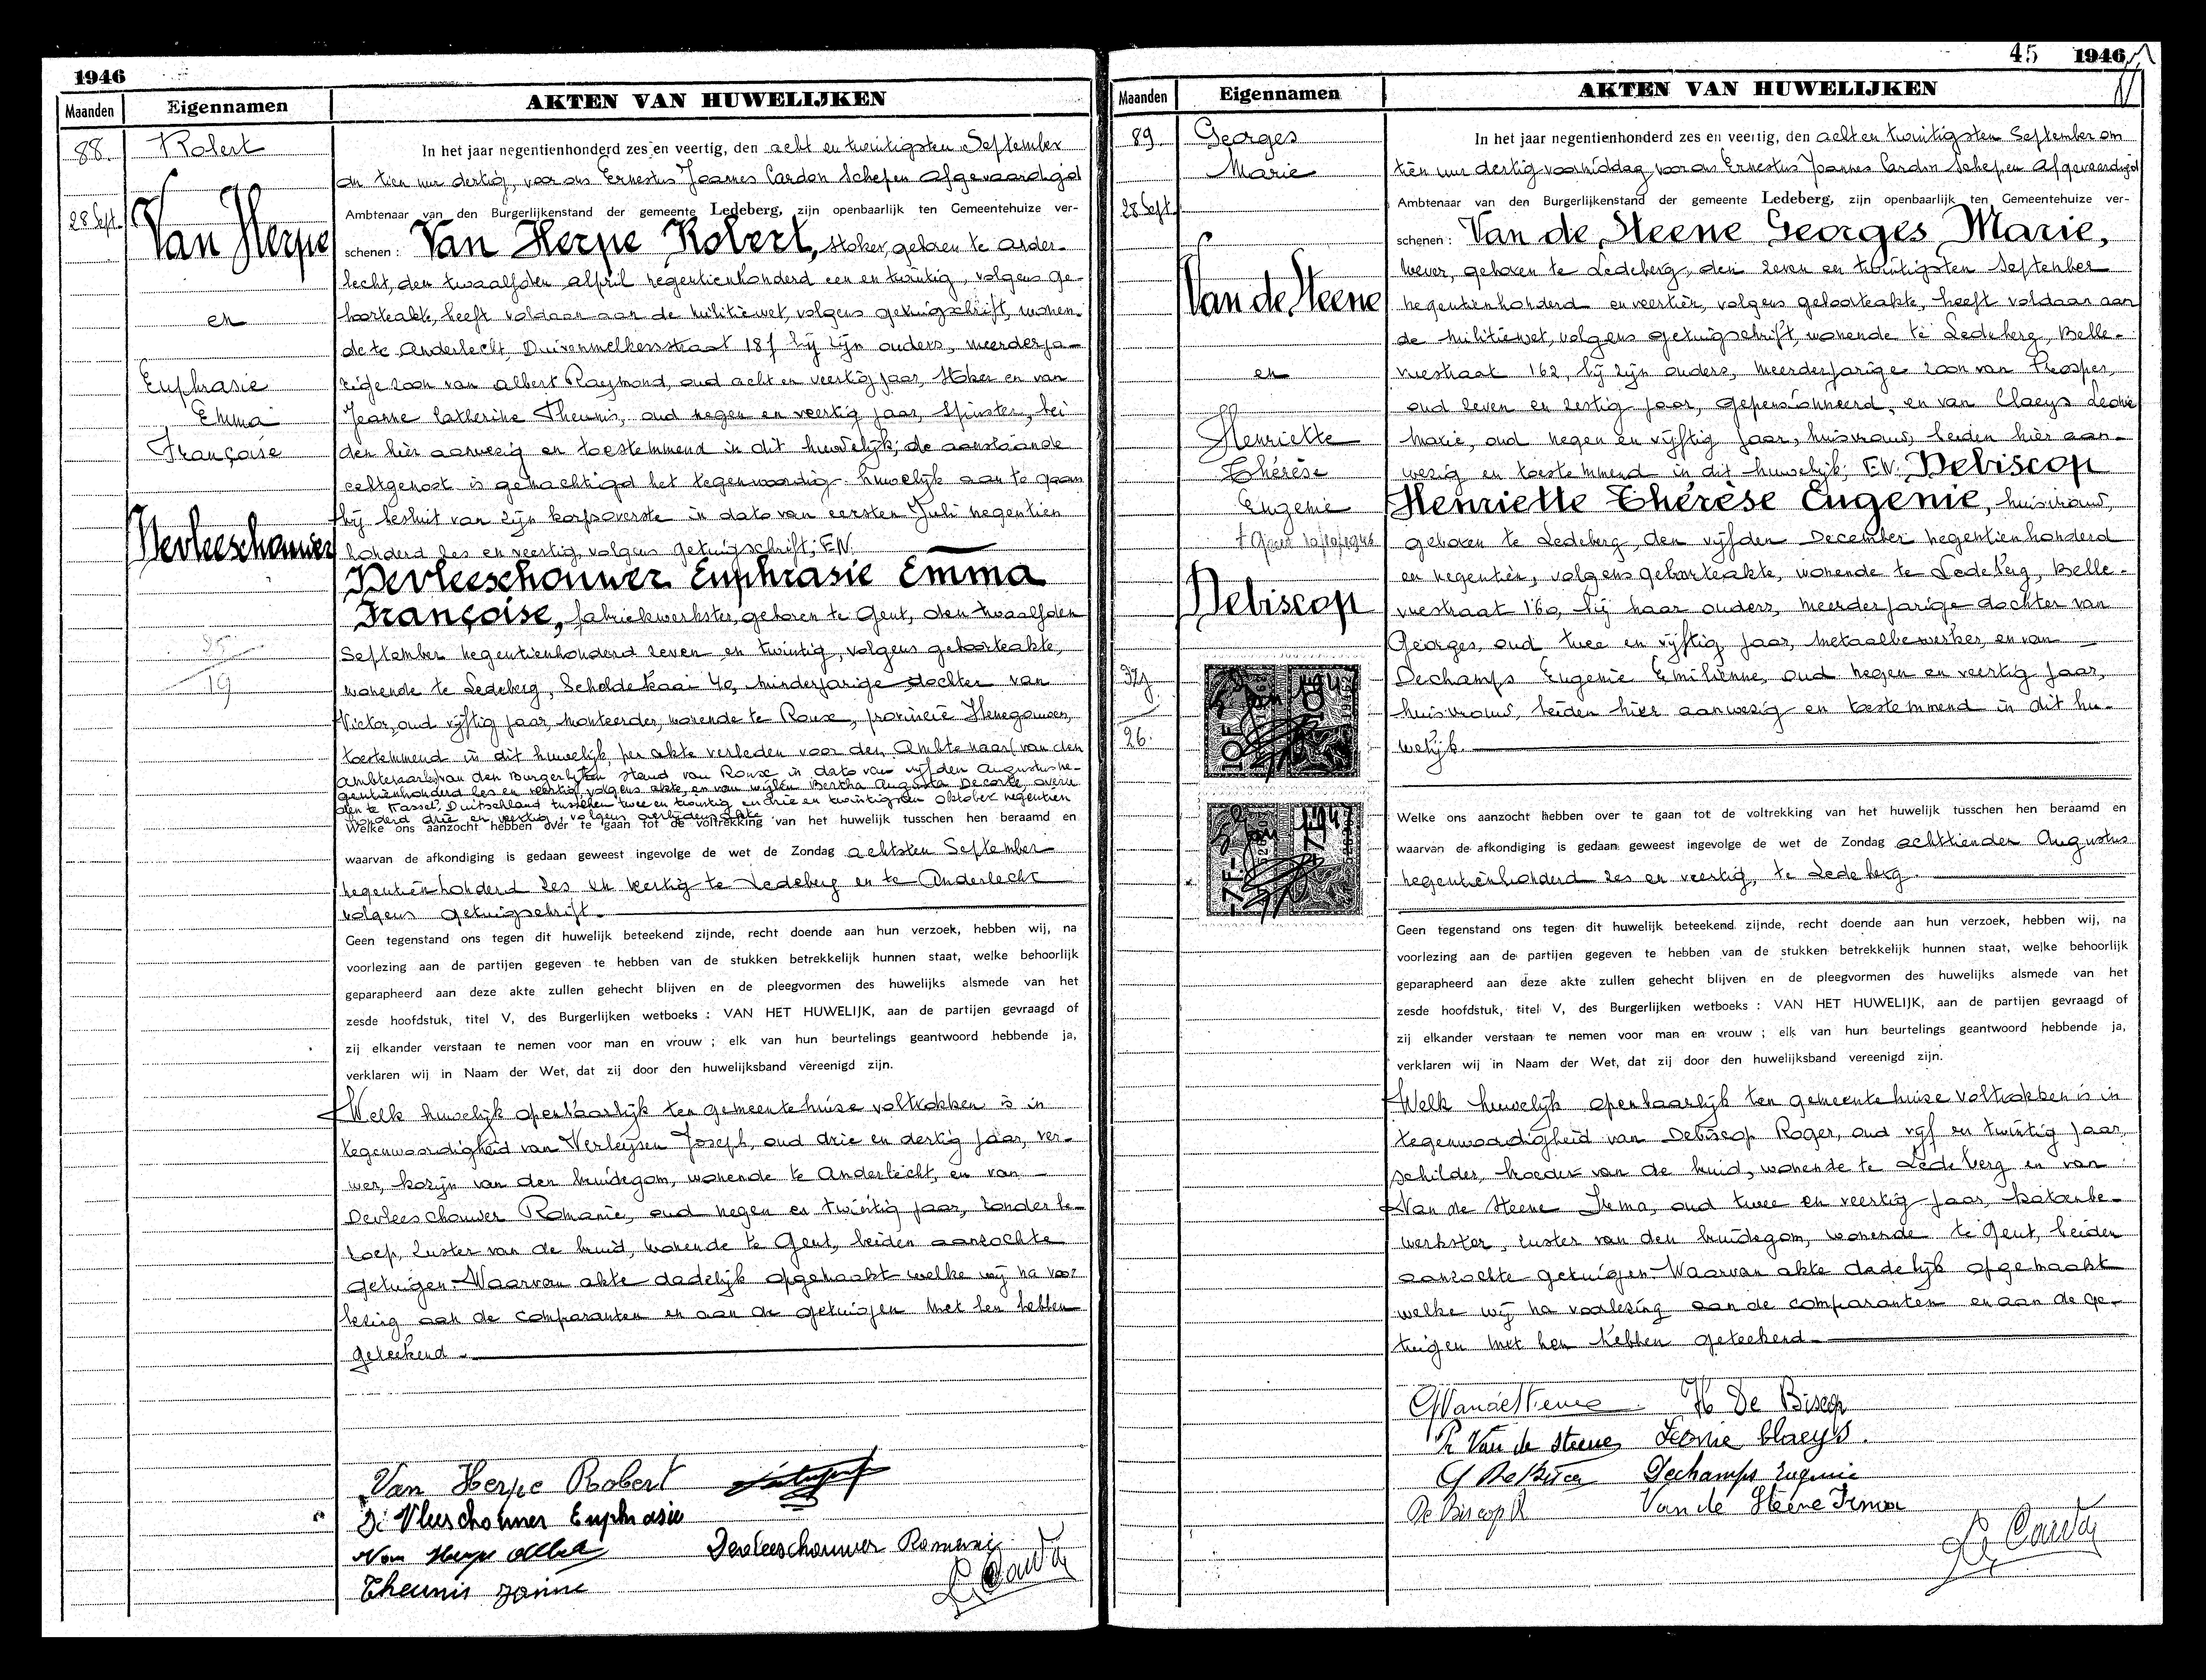 1946
Maanden Eigennamen AKTEN VAN HUWELIJKEN
88. Robert
28 Sept.
Van Herpe
en
Euphrasie
Emma
Françoise
Devleeschouwer
19
In het jaar negentienhonderd zes en veertig, den acht en twintigsten September
om tien uur dertig, voor ons Ernestus Joannes Cardon Schepen Afgevaardigd
Ambtenaar van den Burgerlijkenstand der gemeente Ledeberg, zijn openbaarlijk ten Gemeentehuize ver-
schenen : Van Herpe Robert, stoker, geboren te Ander-
lecht, den twaalfden April negentienhonderd een en twintig, volgens ge-
boorteakte, heeft voldaan aan de militiewet, volgens getuigschrift, wonen-
de te Anderlecht, Duivenmelkersstraat 187 bij zijn ouders, meerderja-
rige zoon van Albert Raymond, oud acht en veertig jaar, stoker en van
Jeanne Catherine Theunis, oud negen en veertig jaar, spinster, bei
den hier aanwezig en toestemmend in dit huwelijk; de aanstaande
echtgenoot is gemachtigd het tegenwoordig huwelijk aan te gaan
bij besluit van zijn korpsoverste in dato van eersten Juli negentien
honderd zes en veertig, volgens getuigschrift; EN.
Devleeschouwer Euphrasie Emma
Françoise, fabriekwerkster, geboren te Gent, den twaalfden
September negentienhonderd zeven en twintig, volgens geboorteakte,
wonende te Ledeberg, Schelde kaai 40, minderjarige dochter van
Victor, oud vijftig jaar, monteerder, wonende te Roux, provincie Henegouwen,
toestemmend in dit huwelijk per akte verleden voor den Ambtenaar van den
Ambtenaar van den Burgerlijken stand van Roux in dato van vijfden Augustus ne-
gentienhonderd zes en veertig, volgens akte, en van wijlen Bertha Augusta Decorte, overle
den te Kassel, Duitschland tusschen twee en twintig en drie en twintigsten Oktober negentien
honderd drie en veertig, volgens overlijdensakte
Welke ons aanzocht hebben over te gaan tot de voltrekking van het huwelijk tusschen hen beraamd en
waarvan de afkondiging is gedaan geweest ingevolge de wet de Zondag achtsten September
negentienhonderd zes en veertig te Ledeberg en te Anderlecht
volgens getuigschrift.
Geen tegenstand ons tegen dit huwelijk beteekend zijnde, recht doende aan hun verzoek, hebben wij, na
voorlezing aan de partijen gegeven te hebben van de stukken betrekkelijk hunnen staat, welke behoorlijk
geparapheerd aan deze akte zullen gehecht blijven en de pleegvormen des huwelijks alsmede van het
zesde hoofdstuk, titel V, des Burgerlijken wetboeks : VAN HET HUWELIJK, aan de partijen gevraagd of
zij elkander verstaan te nemen voor man en vrouw ; elk van hun beurtelings geantwoord hebbende ja,
verklaren wij in Naam der Wet, dat zij door den huwelijksband vereenigd zijn.
Welk huwelijk openbaarlijk ten gemeentehuize voltrokken is in
tegenwoordigheid van Verleysen Joseph, oud drie en dertig jaar, ver-
wer, kozijn van den bruidegom, wonende te Anderlecht, en van
Devleeschouwer Romanie, oud negen en twintig jaar, zonder be-
roep, zuster van de bruid, wonende te Gent, beiden aanzochte
getuigen. Waarvan akte dadelijk opgemaakt welke wij na voor
lezing aan de comparanten en aan de getuigen met hen hebben
geteekend.
Van Herpe Robert
De Vleeschouwer Euphrasie
Van Herpe Albert
Devleeschouwer Romanie
Theunis Janne
E. Cardon
45 1946
Maanden Eigennamen AKTEN VAN HUWELIJKEN
89 Georges
Marie
28 Sept
Van de Steene
en
Henriette
Thérèse
Eugenie
Debiscop
26.
10F 10F
7F 7F
In het jaar negentienhonderd zes en veertig, den acht en twintigsten September om
tien uur dertig voormiddag voor ons Ernestus Joannes Cardon Schepen Afgevaardigd
Ambtenaar van den Burgerlijkenstand der gemeente Ledeberg, zijn openbaarlijk ten Gemeentehuize ver-
schenen : Van de Steene Georges Marie,
wever, geboren te Ledeberg, den zeven en twintigsten September
negentienhonderd en veertien, volgens geboorteakte, heeft voldaan aan
de militiewet, volgens getuigschrift, wonende te Ledeberg, Belle-
vuestraat 162, bij zijn ouders, meerderjarige zoon van Prosper,
oud zeven en zestig jaar, gepensionneerd, en van Claeys Leonie
Marie, oud negen en vijftig jaar, huisvrouw, beiden hier aan-
wezig en toestemmend in dit huwelijk; EN. Debiscop
Henriette Thérèse Eugenie, huisvrouw,
geboren te Ledeberg, den vijfden December negentienhonderd
en negentien, volgens geboorteakte, wonende te Ledeberg, Belle-
vuestraat 160, bij haar ouders, meerderjarige dochter van
Georges, oud twee en vijftig jaar, metaalbewerker, en van
Dechamps Eugenie Emilienne, oud negen en veertig jaar,
huisvrouw, beiden hier aanwezig en toestemmend in dit hu-
welijk.
Welke ons aanzocht hebben over te gaan tot de voltrekking van het huwelijk tusschen hen beraamd en
waarvan de afkondiging is gedaan geweest ingevolge de wet de Zondag achttienden Augustus
negentienhonderd zes en veertig, te Ledeberg.
Geen tegenstand ons tegen dit huwelijk beteekend zijnde, recht doende aan hun verzoek, hebben wij, na
voorlezing aan de partijen gegeven te hebben van de stukken betrekkelijk hunnen staat, welke behoorlijk
geparapheerd aan deze akte zullen gehecht blijven en de pleegvormen des huwelijks alsmede van het
zesde hoofdstuk, titel V, des Burgerlijken wetboeks : VAN HET HUWELIJK, aan de partijen gevraagd of
zij elkander verstaan te nemen voor man en vrouw ; elk van hun beurtelings geantwoord hebbende ja,
verklaren wij in Naam der Wet, dat zij door den huwelijksband vereenigd zijn.
Welk huwelijk openbaarlijk ten gemeentehuize voltrokken is in
tegenwoordigheid van Debiscop Roger, oud vijf en twintig jaar,
schilder, broeder van de bruid, wonende te Ledeberg en van
Van de Steene Irma, oud twee en veertig jaar, katoenbe-
werkster, zuster van den bruidegom, wonende te Gent, beiden
aanzochte getuigen. Waarvan akte dadelijk opgemaakt
welke wij na voorlezing aan de comparanten en aan de ge-
tuigen met hen hebben geteekend.
G Van de Steene H De Biscop
Pr Van de Steene Leonie Claeys.
G De Biscop Dechamps Eugenie
De Biscop R Van de Steene Irma
E. Cardon